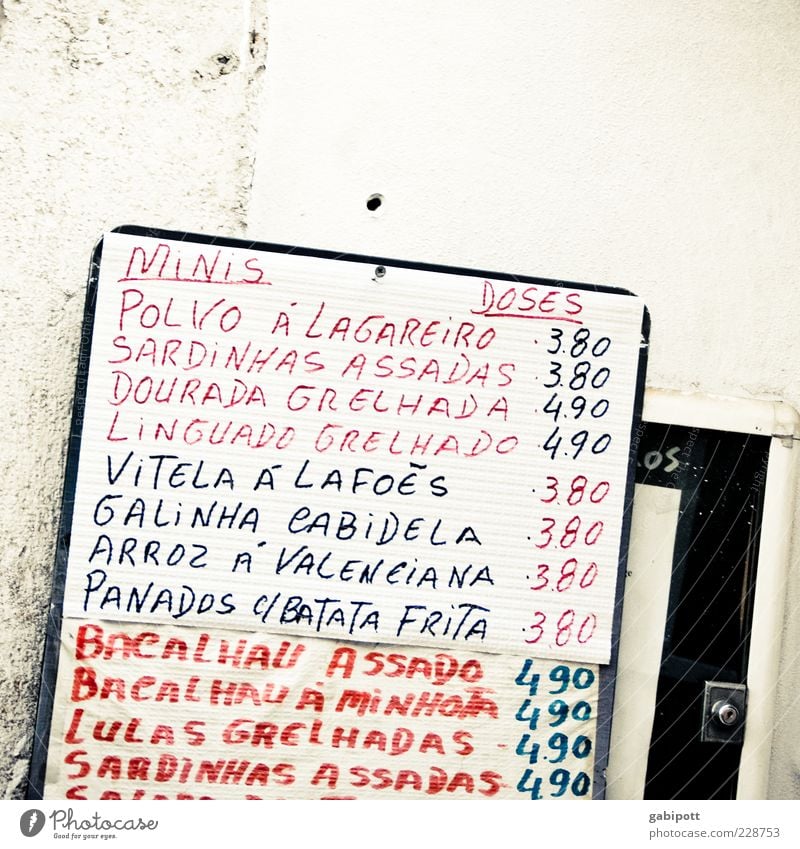 MINIS DOSES
POLVO Á LAGAREIRO .3.80
SARDINHAS ASSADAS .3.80
DOURADA GRELHADA .4.90
LINGUADO GRELHADO .4.90
VITELA Á LAFOẼS .3.80
GALINHA CABIDELA .3.80
ARROZ Á VALENCIANA .3.80
PANADOS C/BATATA FRITA .3.80
BACALHAU ASSADO 4.90
BACALHAU Á MINHOTA 4.90
LULAS GRELHADAS - 4.90
SARDINHAS ASSADAS 4.90
ROS
Respect Copyright
PHOTOCASE
Good for your eyes.
gabipott
228753